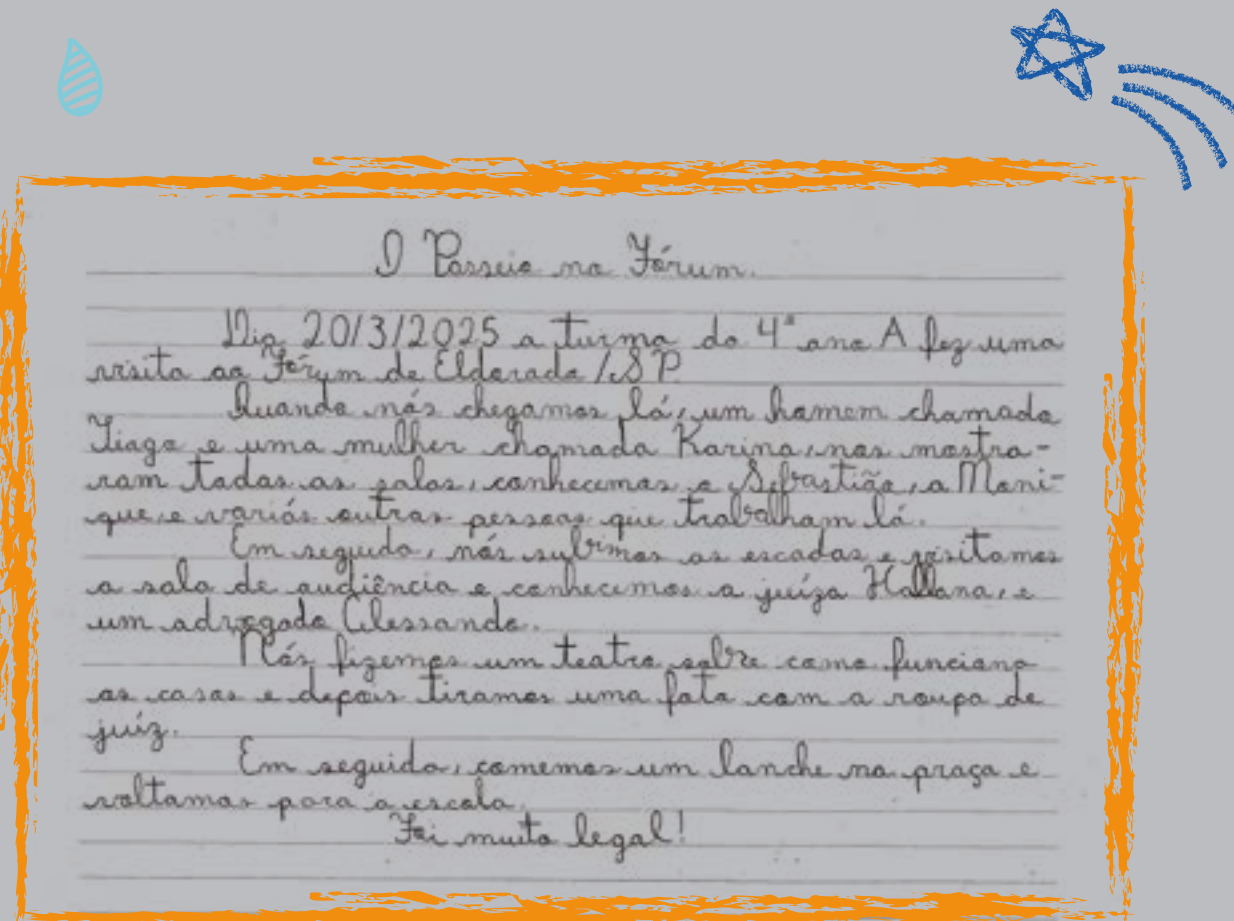 O Passeio no Fórum.
Dia 20/3/2025 a turma do 4º ano A fez uma
visita ao Fórum de Eldorado/SP.
Quando nós chegamos lá, um homem chamado
Tiago e uma mulher chamada Karina, nos mostra-
ram todas as salas, conhecemos o Sebastião, a Moni-
que, e variás outras pessoas que trabalham lá.
Em seguida, nós subimos as escadas e visitamos
a sala de audiência e conhecemos a juíza Hallana, e
um advogado Alessando.
Nós fizemos um teatro sobre como funciona
os casos e depois tiramos uma foto com a roupa de
juíz.
Em seguida, comemos um lanche na praça e
voltamos para a escola.
Foi muito legal!